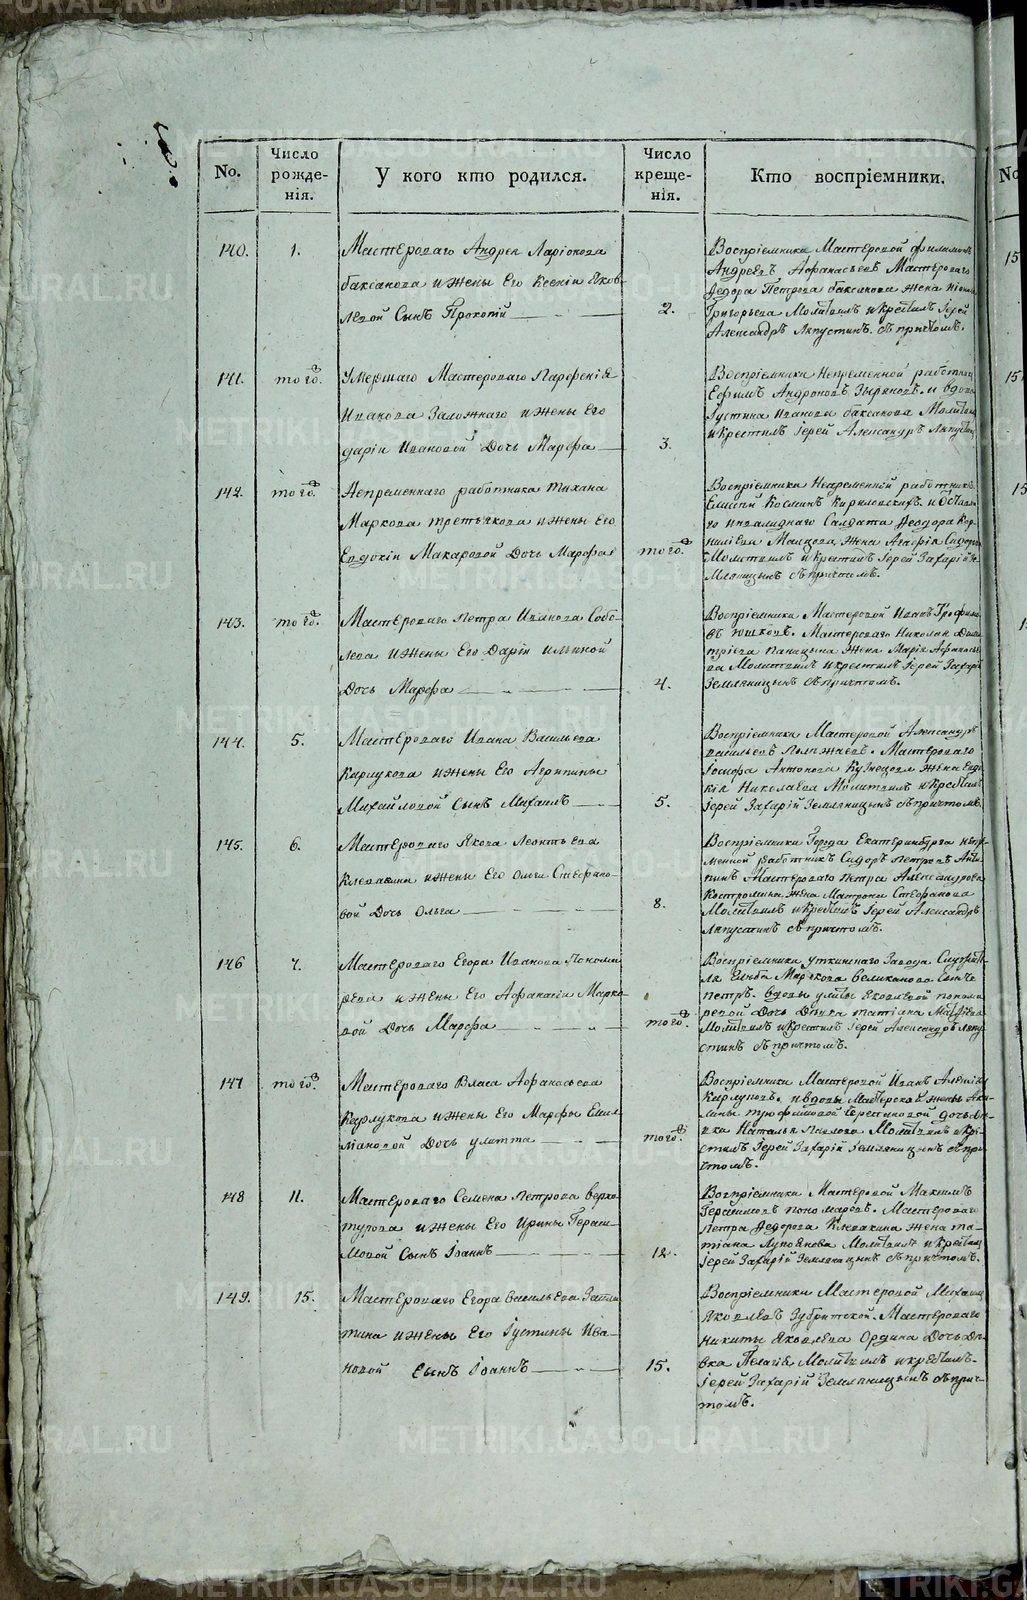 No.
Число рожде-нія.
У кого кто родился.
Число креще-нія.
Кто воспріемники.
140.
1.
Мастероваго Андрея Ларіонова
баксанова и жены Его Ксеніи Яков
левой Сынъ Прокопій
2.
Воспріемники Мастеровой
Андреевъ Афанасьевъ Мастероваго
Федора Петрова баксанова жена
Григорьева Молитвилъ и крестилъ Іерей
Александръ Ляпустинъ. съ причтомъ.
141.
того.
Умершаго Мастероваго Парфенія
Иванова Заложнаго и жены Его
даріи Ивановой Дочь Марфа
3.
Воспріемники Непременной работник
Ефимъ Андроновъ Зыряновъ. и вдова
Іустина Иванова баксанова Молитвил
и крестилъ Іерей Александръ Ляпустин
142.
того.
Непременнаго работника Тихана
Маркова третьякова и жены Его
Евдокіи Макаровой Дочь Марфа
того.
Воспріемники Непременной работникъ
Елисей Косминъ Кириловскихъ. и
го инвалиднаго Салдата Феодора Кор
ниліева Малцова жена Агафія Сидоров
Молитвилъ и крестилъ Іерей Захарій
Мляницынъ съ причтомъ.
143.
того.
Мастероваго Петра Иванова Собо
лева и жены Его Даріи Ильиной
Дочь Марфа
4.
Воспріемники Мастеровой Иванъ Трофимо
въ Юшковъ. Мастероваго Николая Дими
тріева Паницына жена Марія Афанасье
ва Молитвилъ и крестилъ Іерей Захарій
Земляницынъ съ причтомъ.
144.
5.
Мастероваго Ивана Васильева
Карлукова и жены Его Агрипины
Михайловой сынъ Михаилъ
5.
Воспріемники Мастеровой Александръ
васильевъ Полежаевъ. Мастероваго
Іосифа Антонова Кузнецова жена Евдо
кія Николаева Молитвилъ и крестилъ
Іерей Захарій Земляницынъ съ причтомъ
145.
6.
Мастероваго Якова Леонтьева
Клевакина и жены Его Ольги Стефано
вой Дочь Ольга
8.
Воспріемники Города Екатеринбурга непре
менной работникъ Сидоръ Петровъ
пинъ Мастероваго Петра Александрова
Костромина жена Матрона Стефанова
Молитвилъ и крестилъ Іерей Александръ
Ляпустинъ съ причтомъ.
146
7.
Мастероваго Егора Иванова Понома
рева и жены Его Афанасіи Марко
вой Дочь Марфа
того.
Воспріемники уткинскаго Завода Служите
ля Маркова великанова Сынъ
петръ. вдовы улиты Яковлевой понома
ревой Дочь Девка татіана Матфеева
Молитвилъ и крестилъ Іерей Александръ Ляпу
стинъ съ причтомъ.
147
того.
Мастероваго Власа Афанасьева
Карлукова и жены Его Марфы Емил
іановой Дочь улитта
того.
Воспріемники Мастеровой Иванъ Алексеев
Карлуковъ. и вдовы Мастерской жены Аку
лины трофимовой Черепановой дочь де
вка Наталья Павлова Молитвилъ и кре
стилъ Іерей Захарій Земляницынъ съ при
чтомъ.
148
11.
Мастероваго Семена Петрова верхо
турова и жены Его Ирины Гераси
мовой Сынъ Іоаннъ
12.
Воспріемники Мастеровой Максимъ
Герасимовъ пономаревъ. Мастероваго
Петра Федорова Клевакина жена та
тіана Лупоянова Молитвилъ и крестилъ
Іерей Захарій Земляницынъ съ причтомъ.
149.
15.
Мастероваго Егора васильева
тина и жены Его Іустины Ива
новой сынъ Іоаннъ
15.
Воспріемники Мастеровой Михаил
Яковлевъ Зубритской. Мастероваго
Никиты Яковлева Ордина Дочь де
вка Пелагія Молитвилъ и крестилъ
Іерей Захарій Земляницынъ съ прич
томъ.
METRIKI.GASO-URAL.RU